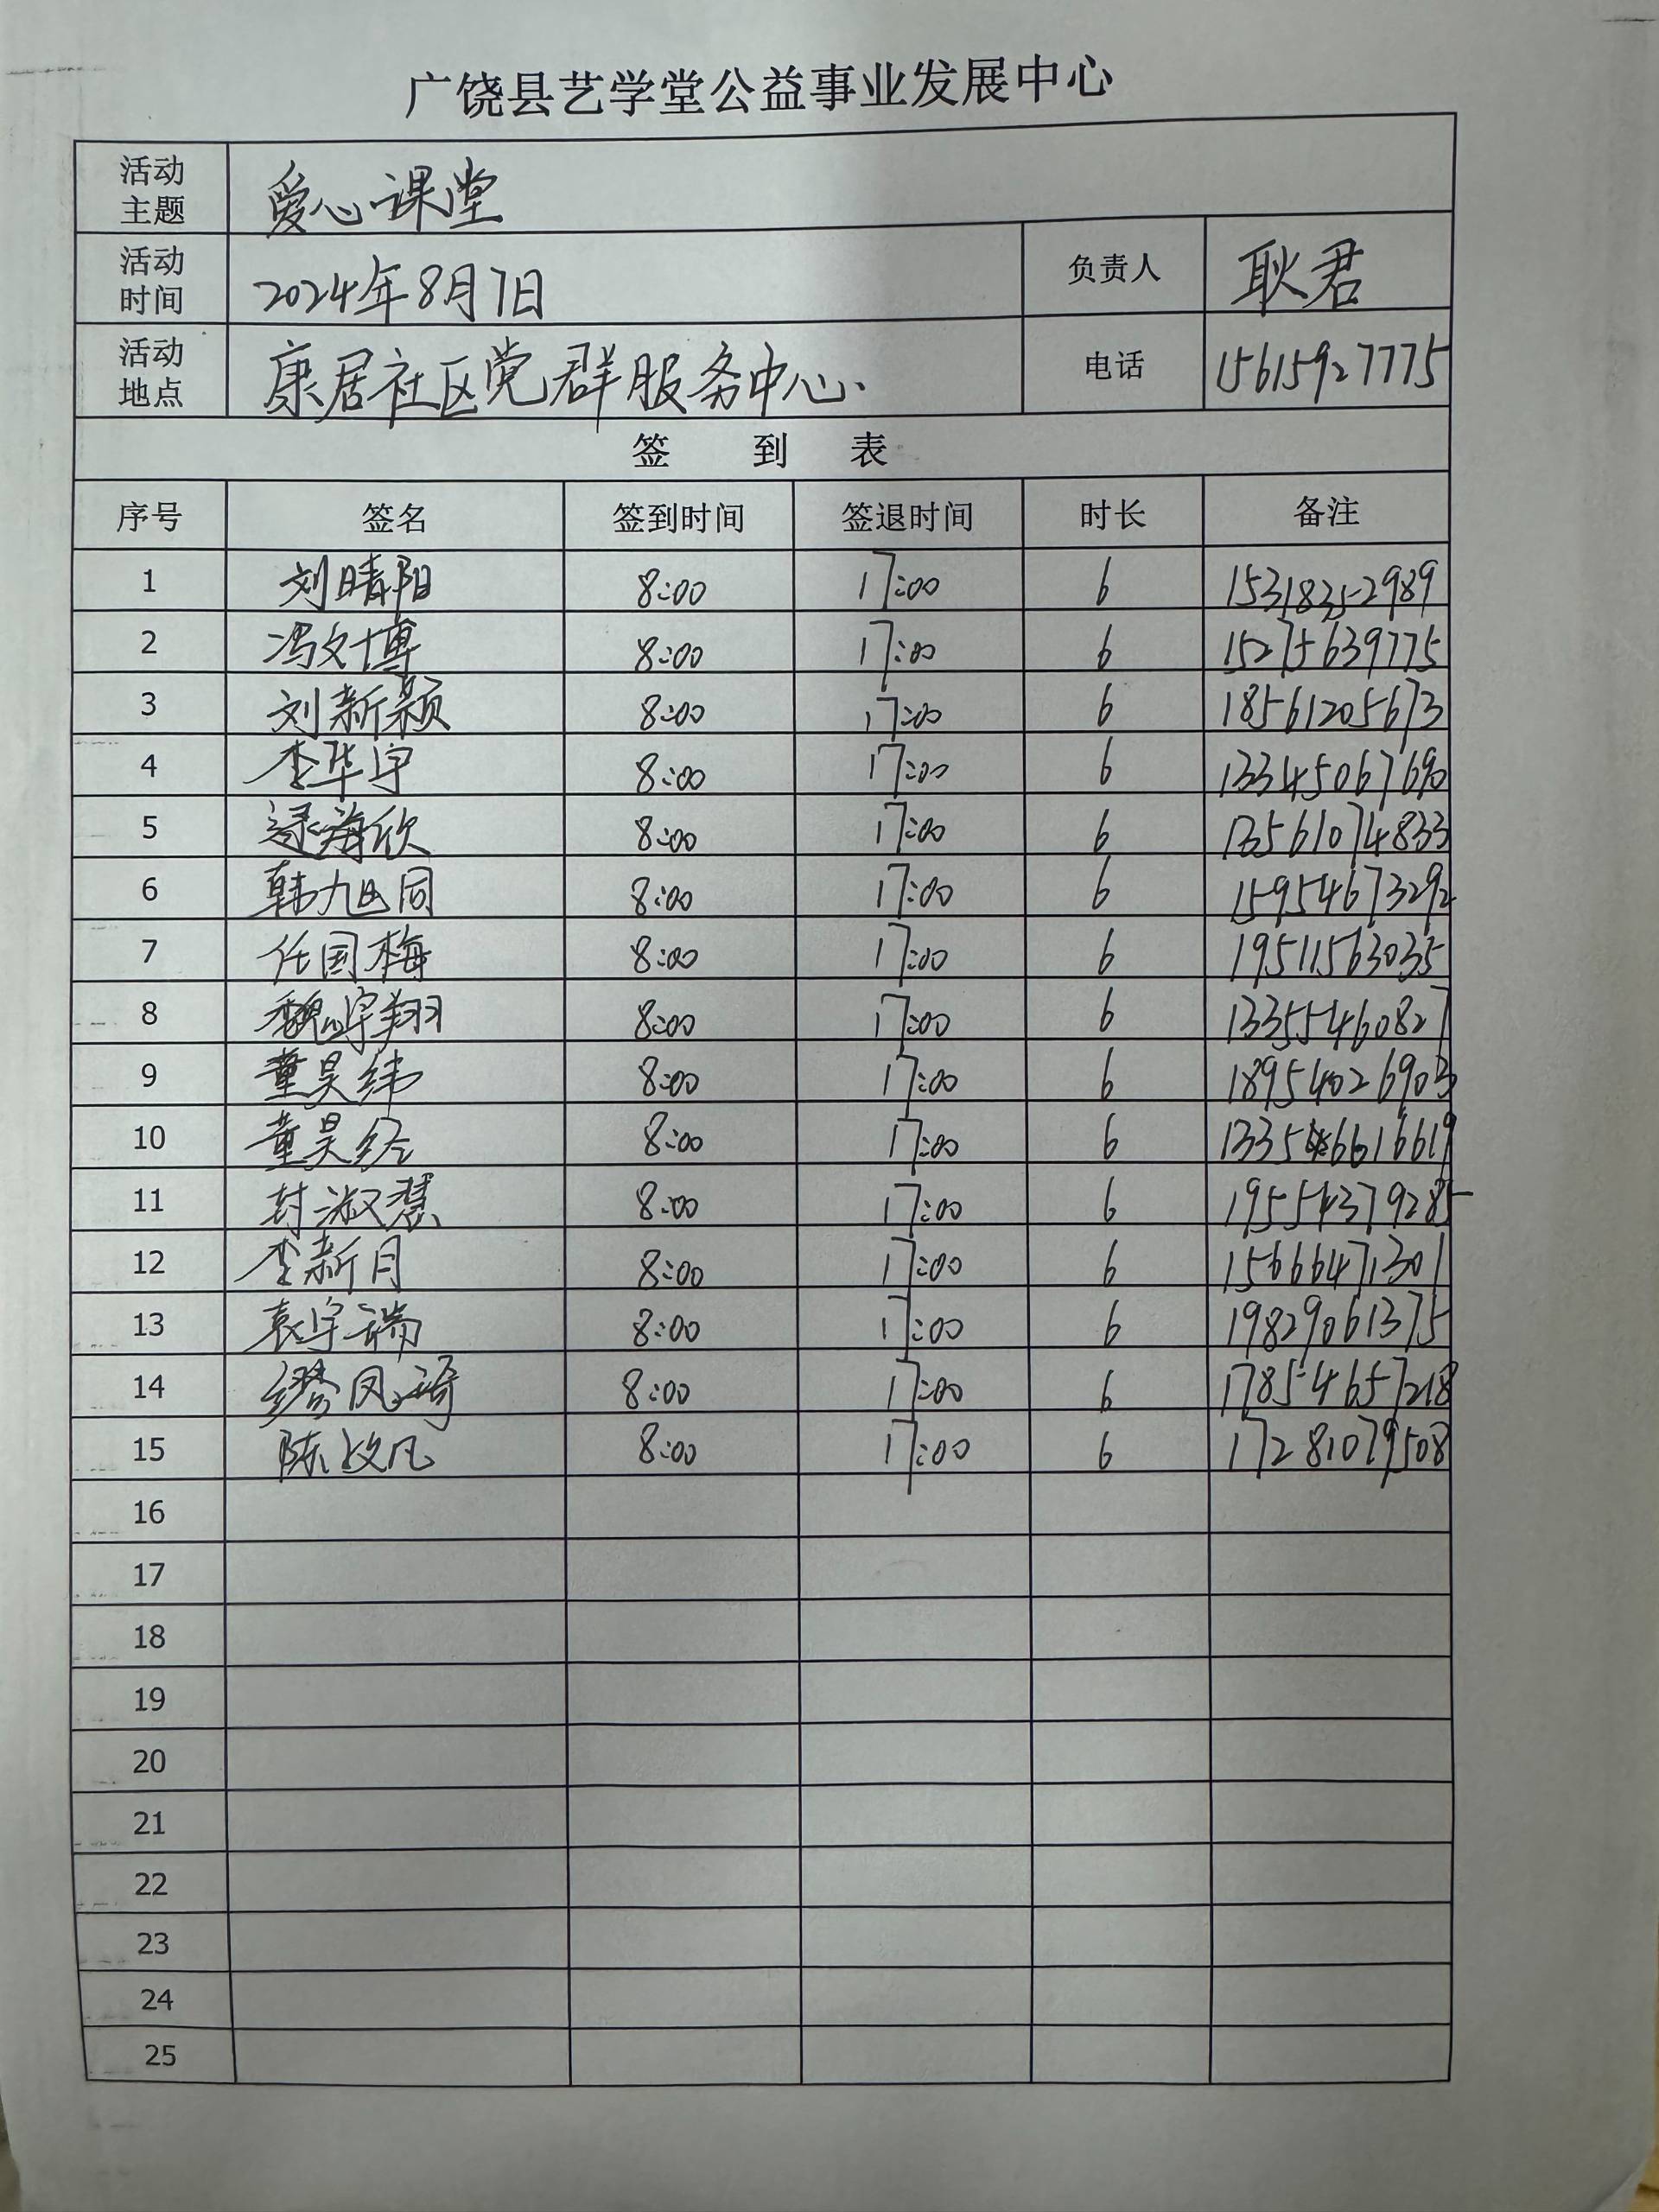 广饶县艺学堂公益事业发展中心
活动主题 爱心课堂
活动时间 2024年8月7日 负责人 耿君
活动地点 康居社区党群服务中心. 电话 15615927775
签到表
序号 签名 签到时间 签退时间 时长 备注
1 刘晴阳 8:00 17:00 6 15318352989
2 冯文博 8:00 17:00 6 15275639775
3 刘新颖 8:00 17:00 6 18561205673
4 李华宇 8:00 17:00 6 13345067690
5 逯海欣 8:00 17:00 6 13561074833
6 韩旭同 8:00 17:00 6 15954673292
7 任国梅 8:00 17:00 6 19511563035
8 魏宇翔 8:00 17:00 6 13355460827
9 董昊纬 8:00 17:00 6 18954026903
10 董昊经 8:00 17:00 6
11 封淑慧 8:00 17:00 6 19554379285
12 李新月 8:00 17:00 6 15666471301
13 袁宇瑞 8:00 17:00 6 19829061375
14 缪凤琦 8:00 17:00 6 17854657218
15 陈政凡 8:00 17:00 6 17281079508
16
17
18
19
20
21
22
23
24
25